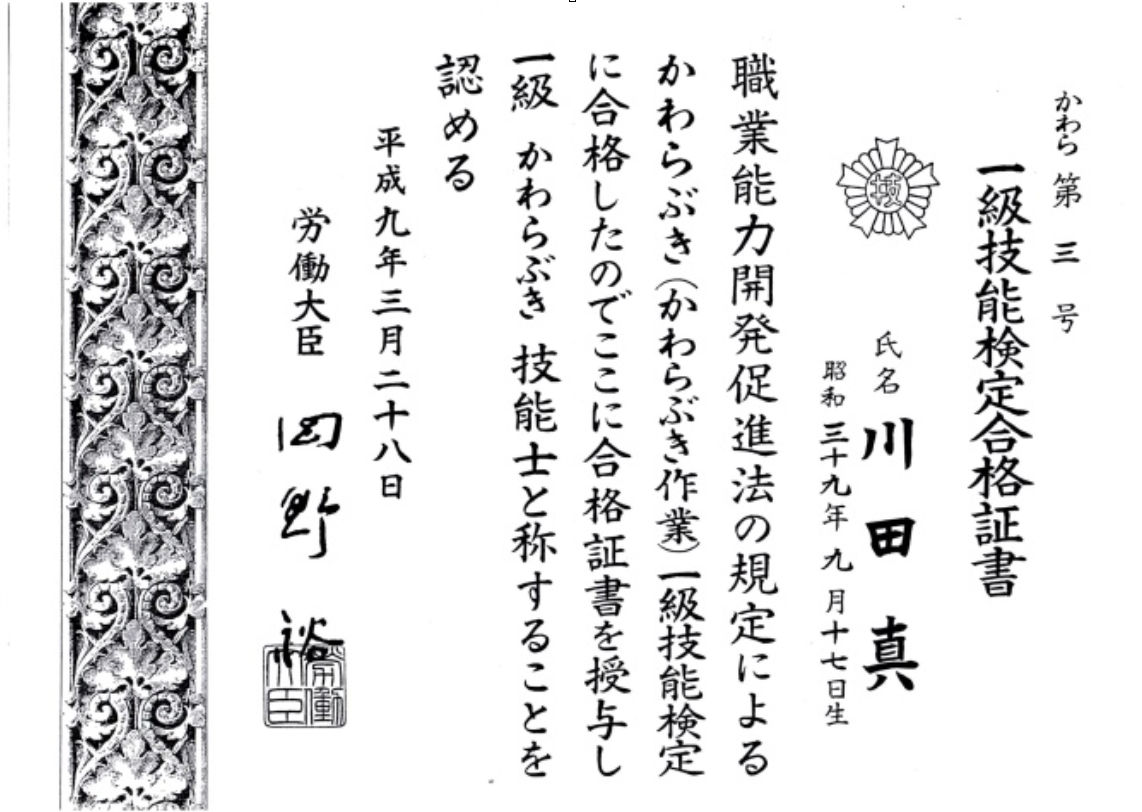 かわら第三号
一級技能検定合格証書
技
氏名 川田真
昭和三十九年九月十七日生
職業能力開発促進法の規定による
かわらぶき（かわらぶき作業）一級技能検定
に合格したのでここに合格証書を授与し
一級 かわらぶき 技能士と称することを
認める
平成九年三月二十八日
労働大臣 岡野裕
労働大臣